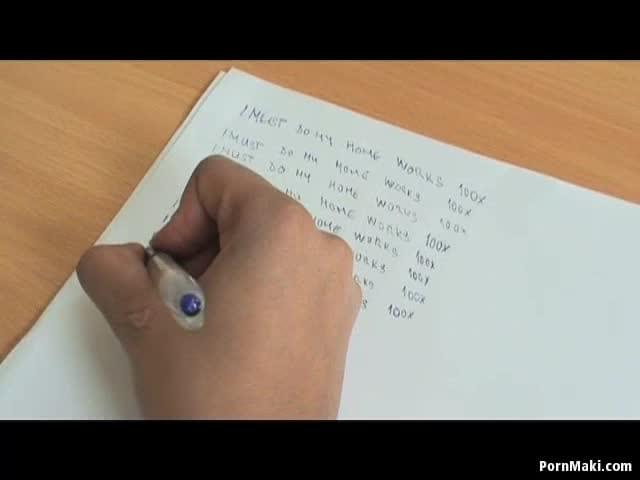 I MUST DO MY HOME WORKS 100X
I MUST DO MY HOME WORKS 100X
I MUST DO MY HOME WORKS 100X
MY HOME WORKS 100X
HOME WORKS 100X
WORKS 100X
100X
100X
PornMaki.com